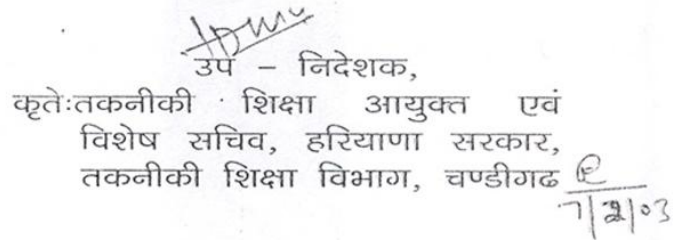 उप – निदेशक,
कृतेःतकनीकी शिक्षा आयुक्त एवं
विशेष सचिव, हरियाणा सरकार,
तकनीकी शिक्षा विभाग, चण्डीगढ
7/2/03